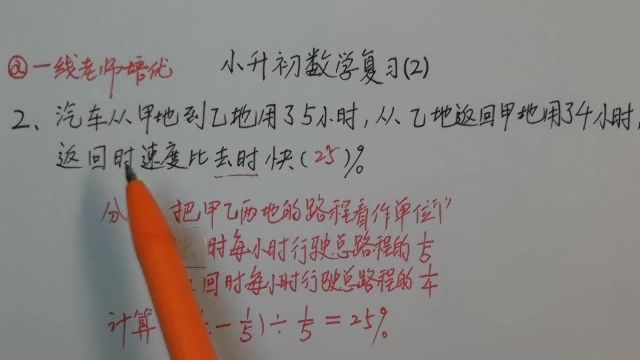 @一线老师培优 小升初数学复习(2)
2、汽车从甲地到乙地用了5小时,从乙地返回甲地用了4小时,
返回时速度比去时快(25)%
分 把甲乙两地的路程看作单位"1"
时每小时行驶总路程的1/5
回时每小时行驶总路程的1/4
计算 - 1/5)÷1/5=25%